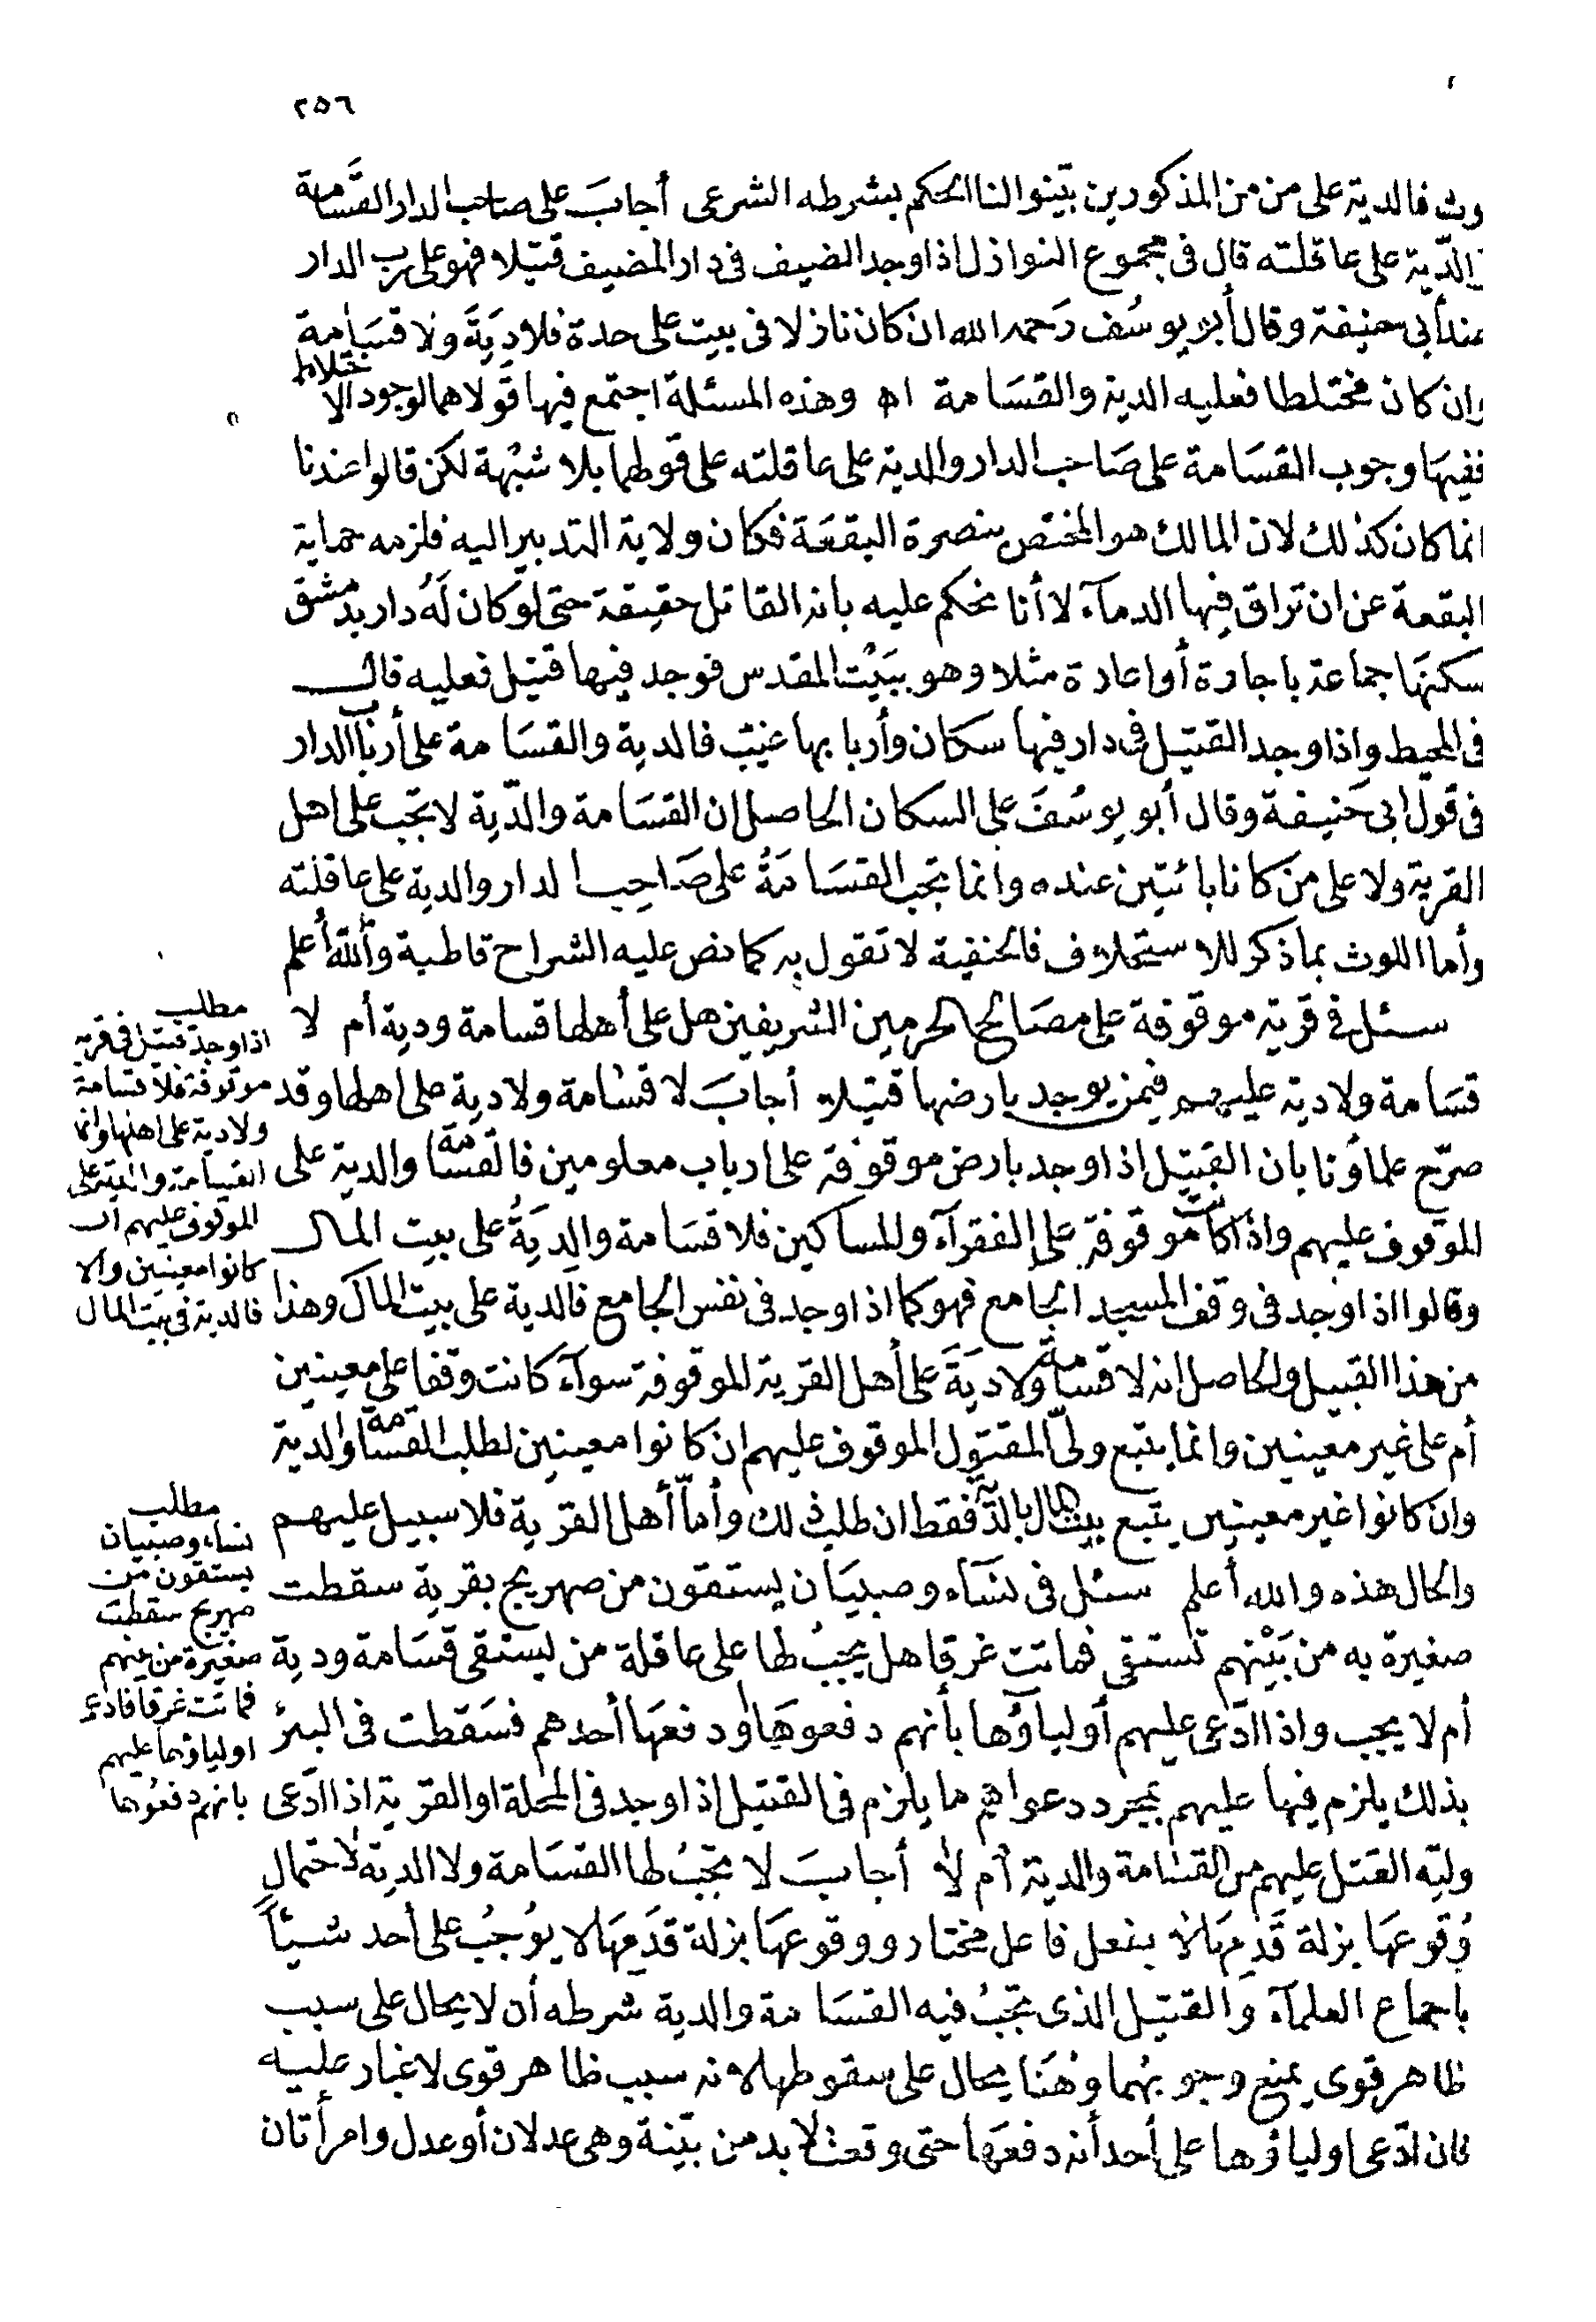 ٢٥٦
وث فالدية على من من المذكورين بينوا لنا الحكم بشرطه الشرعى أجابَ على صاحب الدار القسَامة
والدّية على عاقلته قال فى مجموع النوازل اذا وجد الضيف فى دار المضيف قتيلا فهو على رب الدار
عند أبى حنيفة وقال أبو يوسُف رَحمه الله ان كان نازلا فى بيت على حدة فلا ديَةَ ولا قسَامة
وان كان مختلطا فعليه الدية والقسَامة اه وهذه المسئلة اجتمع فيها قولاهما لوجود الاختلاط
ففيهَا وجوب القسَامة على صَاحب الدار والدية على عاقلته على قولهما بلا شبْهة لكن قالوا عندنا
انما كان كذلك لان المالك هو المختص بنصرة البقعَة فكان ولاية التدبير اليه فلزمه حماية
البقعة عن ان تراق فيها الدمآء لا أنا نحكم عليه بانه القاتل حقيقة حتى لو كان لَهُ دار بدمشق
سكنهَا جماعة باجارة أو اعارة مثلا وهو ببَيْت المقدس فوجد فيها قتيل فعليه قال
فى المحيط واذا وجد القتيل فى دار فيها سكان وأربابها غيّب فالدية والقسَامة على أرباب الدار
فى قول ابى حَنيفة وقال أبو يوسُفَ على السكان الحاصل ان القسَامة والدّية لا تجب على اهل
القرية ولا على من كانا بائتين عنده وانما تجب القسَامَةُ على صَاحِب الدار والدية على عاقلته
وأما اللوث بما ذكر للاستحلاف فالحنفية لا تقول به كما نص عليه الشراح قاطبة والله أعلم
سئل فى قرية موقوفة على مصَالح الحرمين الشريفين هل على أهلها قسامة ودية أم لا
قسَامة ولا دية عليهم فيمن يوجد بارضها قتيلا أجابَ لا قسَامة ولا دية على اهلها وقد
صرّح علماؤنا بان القتيل اذا وجد بارض موقوفة على ارباب معلومين فالقسَامة والدية على
الموقوف عليهم واذا كانت موقوفة على الفقرآء وللمساكين فلا قسَامة والدِيَةُ على بيت المال
وقالوا اذا وجد فى وقف المسجد الجامع فهو كما اذا وجد فى نفس الجامع فالدية على بيت المال وهذا
من هذا القبيل والحاصل انه لا قسَامة ولا ديَةَ على أهل القرية الموقوفة سوآء كانت وقفا على معينين
أم على غير معينين وانما يتبع ولىّ المقتول الموقوف عليهم ان كانوا معينين لطلب القسَامة والدية
وان كانوا غير معينين يتبع بيت المال بالدّية فقط ان طلب ذلك وأمّا أهل القرية فلا سبيل عليهم
والحال هذه والله أعلم سئل فى نسَآء وصبيَان يستقون من صهريج بقرية سقطت
صغيرة به من بَيْنهم تستقى فماتت غرقا هل يجبُ لها على عاقلة من يستقى قسَامة ودية
أم لا يجب واذا ادّعى عليهم أولياؤها بأنهم دفعوهَا أو دفعهَا أحدهم فسَقطت فى البئر
بذلك يلزم فيها عليهم بمجرد دعواهم ما يلزم فى القتيل اذا وجد فى المحلة او القرية اذا ادّعى
وليّه القتل عليهم من القسَامة والدية أم لا أجابَ لا تجبُ لها القسَامة ولا الدية لاحتمال
وُقوعهَا بزلة قَدمِهَا لا بفعل فاعل مختار ووقوعهَا بزلة قدَمِهَا لا يوُجبُ على أحد شيئاً
باجماع العلمآء والقتيل الذى تجبُ فيه القسَامة والدية شرطه أن لا يحال على سبب
ظاهر قوى يمنع وجوبهُما وهُنَا يحال على سقوطها لانه سبب ظاهر قوى لا غبار عليه
فان ادّعى اولياؤها على أحد أنه دفعهَا حتى وقعت لا بد من بيّنة وهى عدلان أو عدل وامرأتان
مطلب
اذا وجد قتيل فى قرية
موقوفة فلا قسامة
ولا دية على اهلها وانما
القسامة والدية على
الموقوف عليهم ان
كانوا معينين والا
فالدية فى بيت المال
مطلب
نساء وصبيان
يستقون من
صهريج سقطت
صغيرة من بينهم
فماتت غرقا فادعى
اولياؤها عليهم
بانهم دفعُوها